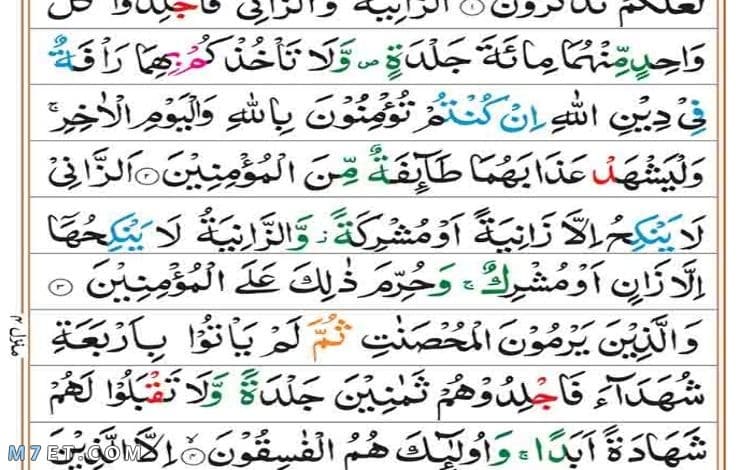 لَعَلَّكُمْ تَذَكَّرُوْنَ ۝۱ اَلزَّانِيَةُ وَالزَّانِىْ فَاجْلِدُوْا كُلَّ
وَاحِدٍ مِّنْهُمَا مِائَةَ جَلْدَةٍ ۪ وَّلَا تَاْخُذْكُمْ بِهِمَا رَاْفَةٌ
فِىْ دِيْنِ اللّٰهِ اِنْ كُنْتُمْ تُؤْمِنُوْنَ بِاللّٰهِ وَالْيَوْمِ الْاٰخِرِ ۚ
وَلْيَشْهَدْ عَذَابَهُمَا طَآئِفَةٌ مِّنَ الْمُؤْمِنِيْنَ ۝۲ اَلزَّانِىْ
لَا يَنْكِحُ اِلَّا زَانِيَةً اَوْ مُشْرِكَةً ؗ وَّالزَّانِيَةُ لَا يَنْكِحُهَاۤ
اِلَّا زَانٍ اَوْ مُشْرِكٌ ۚ وَحُرِّمَ ذٰلِكَ عَلَى الْمُؤْمِنِيْنَ ۝۳
وَالَّذِيْنَ يَرْمُوْنَ الْمُحْصَنٰتِ ثُمَّ لَمْ يَاْتُوْا بِاَرْبَعَةِ
شُهَدَآءَ فَاجْلِدُوْهُمْ ثَمٰنِيْنَ جَلْدَةً وَّلَا تَقْبَلُوْا لَهُمْ
شَهَادَةً اَبَدًا ۚ وَاُولٰٓئِكَ هُمُ الْفٰسِقُوْنَ ۝۴ اِلَّا الَّذِيْنَ
منزل ۴
M7ET.COM